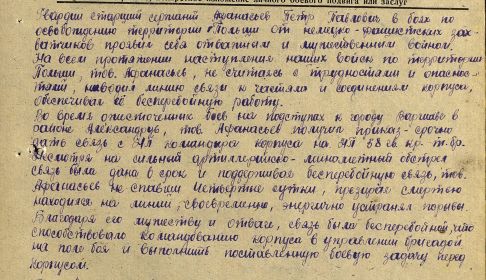 личного боевого подвига или заслуг
Гвардии старший сержант Афанасьев Петр Павлович, в боях по
освобождению территории Польши от немецко-фашистских зах-
ватчиков проявил себя отважным и мужественным воином.
На всем протяжении наступления наших войск по территории
Польши, тов. Афанасьев, не считаясь с трудностями и опаснос-
тями, наводил линию связи к частям и соединениям корпуса,
обеспечивал её бесперебойную работу.
Во время ожесточенных боев на подступах к городу Варшаве в
районе Александрув, тов. Афанасьев получил приказ - срочно
дать связь с НП командира корпуса на НП 58 гв. кр. т-бр.
Несмотря на сильный артиллерийско-минометный обстрел
связь была дана в срок и поддерживал бесперебойную связь, тов.
Афанасьев не спавши четвертые сутки, презирая смертью
находился на линии, своевременно, энергично устранял порывы.
Благодаря его мужеству и отваги, связь была бесперебойной, что
способствовало командованию корпуса в управлении бригадой
на поле боя и выполнить поставленную боевую задачу перед
корпусом.